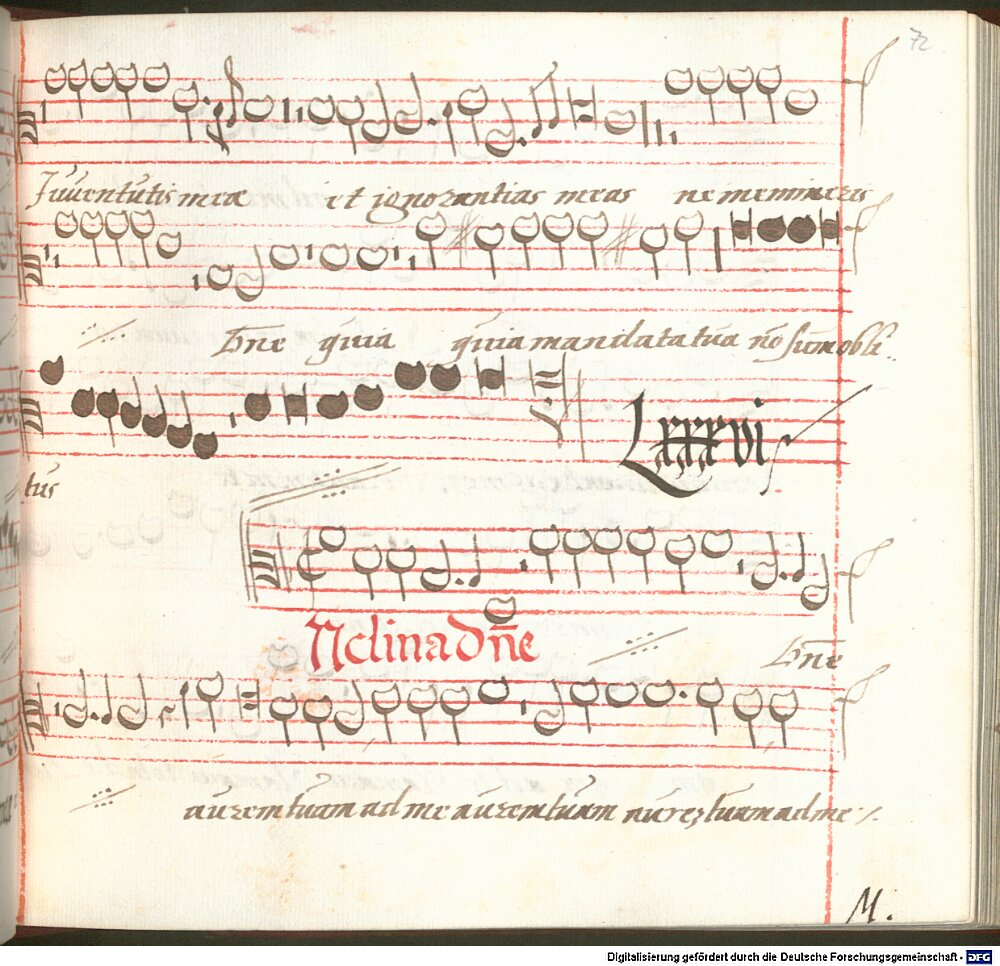 72
Juventutis meæ et ignorantias meas ne memineris
Dn̄e quia quia mandata tua nō sum obli
Lxxxvi
tus
Nclina Dn̄e Dn̄e
aurem tuam ad me aurem tuam aurē tuam ad me
M.
Digitalisierung gefördert durch die Deutsche Forschungsgemeinschaft - DFG